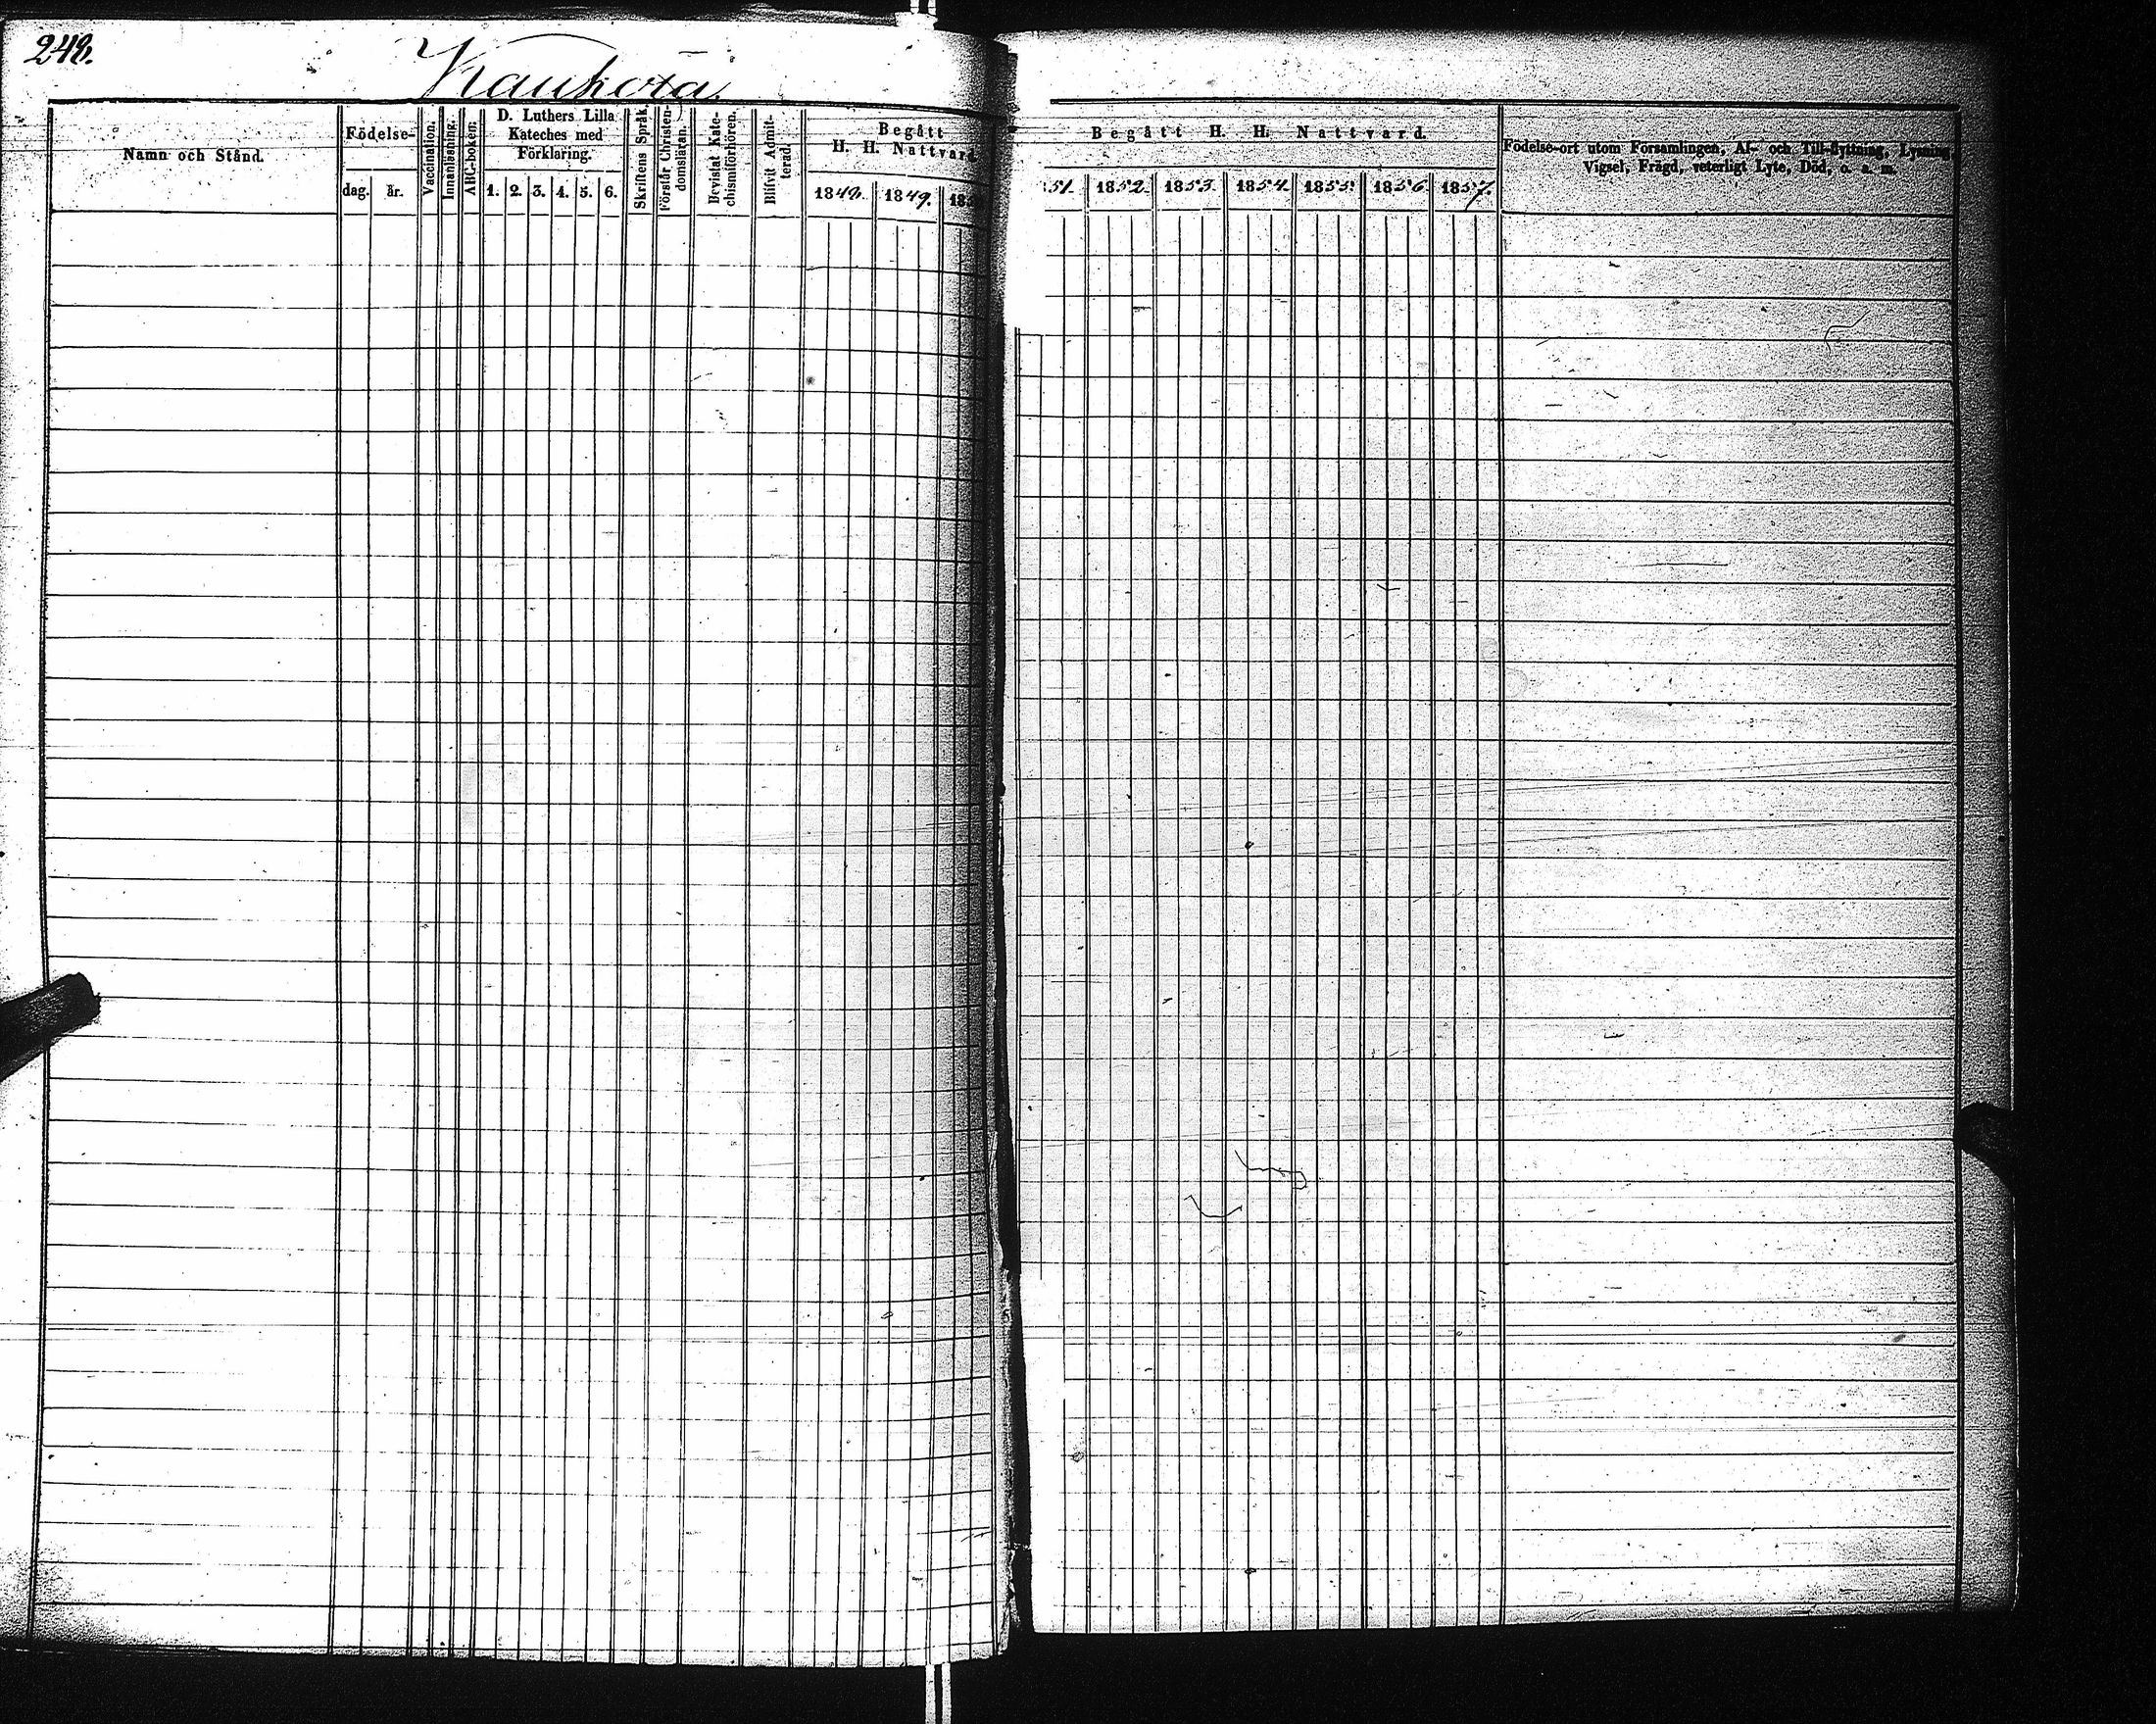 248.
Kauhora.
Namn och Stånd.
Födelse-
dag. år.
Vaccination.
Innanläsning.
ABC-boken.
D. Luthers Lilla
Kateches med
Förklaring.
1. 2. 3. 4. 5. 6.
Skriftens Språk.
Förstår Christen-
domsläran.
Bevistat Kate-
chismiförhören.
Blifvit Admit-
terad.
Begått
H. H. Nattvard
1848. 1849. 185
Begått H. H. Nattvard.
51. 1852. 1853. 1854. 1855. 1856. 1857.
Födelse-ort utom Församlingen, Af- och Till-flyttning, Lysning,
Vigsel, Frägd, veterligt Lyte, Död, o. s. m.